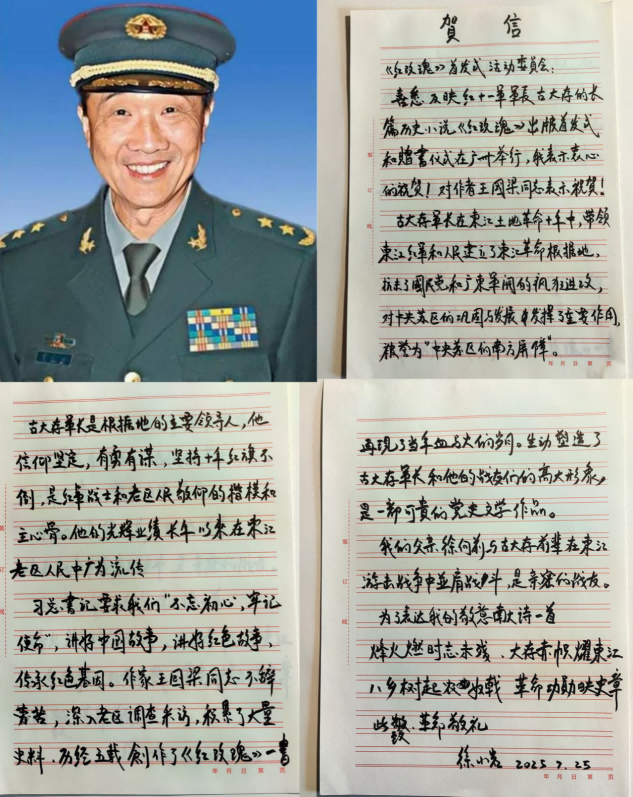 賀 信
《红玫瑰》首发式活动委员会:
喜悉反映红十一军军長古大存的长
篇历史小说《红玫瑰》出版首发式
和赠书仪式在广州举行,我表示衷心
的祝贺!对作者王国梁同志表示祝贺!
古大存军长在東江土地革命十年中,带领
東江红军和人民建立了东江革命根据地,
抗击了国民党和广東军阀的疯狂进攻,
对中央苏区的巩固与发展中发挥了重要作用,
被誉为"中央苏区的南方屏障"。
年 月 日 第 页
古大存军长是根据地的主要领导人,他
信仰坚定,有勇有谋,坚持十年红旗不
倒,是红军战士和老区人民敬仰的楷模和
主心骨。他的光辉业绩长年以来在東江
老区人民中广为流传
习总書记要求我们"不忘初心,牢记
使命",讲好中国故事,讲好红色故事,
传承红色基因。作家王国梁同志不辞
劳苦,深入老区调查采访,积累了大量
史料,历经五载創作了《红玫瑰》一書
年 月 日 第 页
再现了当年血与火的岁月。生动塑造了
古大存军长和他的战友们的高大形象,
是一部可贵的党史文学作品。
我们父亲徐向前与古大存前辈在東江
游击战争中並肩战斗,是亲密的战友。
为了表达我的敬意献上诗一首
烽火燃时志未残 大存赤帜耀東江
八乡树起 革命功勋映史章
此致 革命敬礼
徐小岩 2025.7.25
年 月 日 第 页